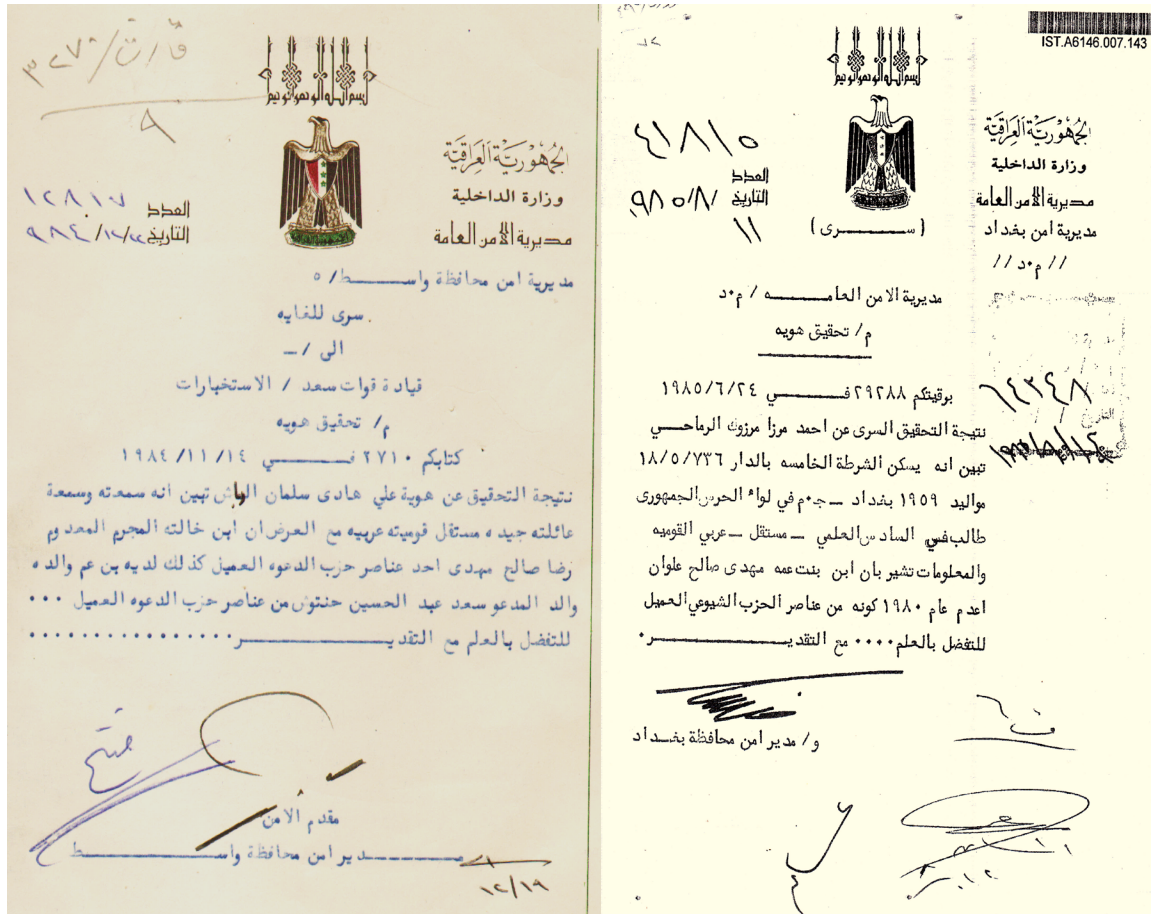 بسم الله الرحمن الرحيم
الجمهورية العراقية
وزارة الداخلية
مديرية الأمن العامة
العدد
التاريخ
مديرية امن محافظة واسـط/ ٥
سرى للغايه
الى /ــ
قيادة قوات سعد / الاستخبارات
م/ تحقيق هويه
كتابكم ٢٧١٠ فـي ١٩٨٤/١١/١٤
نتيجة التحقيق عن هوية علي هادى سلمان تبين انه سمعته وسمعة
عائلته جيده مستقل قوميته عربيه مع العرض ان ابن خالته المجرم المعدوم
رضا صالح مهدى احد عناصر حزب الدعوه العميل كذلك لديه بن عم والده
والد المدعو سعد عبد الحسين حنتوش من عناصر حزب الدعوه العميل ...
للتفضل بالعلم مع التقديـر
مقدم الأمن
مـدير امن محافظة واسـط
١٢/١٩
IST.A6146.007.143
بسم الله الرحمن الرحيم
الجمهورية العراقية
وزارة الداخلية
مديرية الأمن العامة
مديرية امن بغداد
// م٠د //
٤١٨١٥
العدد
التاريخ ٩٨٥/٨/
١١
( سـرى )
مديرية الامن العامـه / م٠د
م/ تحقيق هويه
٦٤٣٤٨
برقيتكم ٢٩٢٨٨ فـي ١٩٨٥/٦/٢٤
نتيجة التحقيق السرى عن احمد مرزا مرزوك الرماحـي
تبين انه يسكن الشرطة الخامسه بالدار ١٨/٥/٧٣٦
مواليد ١٩٥٩ بغداد ــ ج٠م في لواء الحرس الجمهورى
طالب في السادس العلمي ــ مستقل ــ عربي القوميه
والمعلومات تشير بان ابن بنت عمه مهدى صالح علوان
اعدم عام ١٩٨٠ كونه من عناصر الحزب الشيوعي العميل
للتفضل بالعلم ٠٠٠٠ مع التقديـر٠
و/ مدير امن محافظة بغـداد